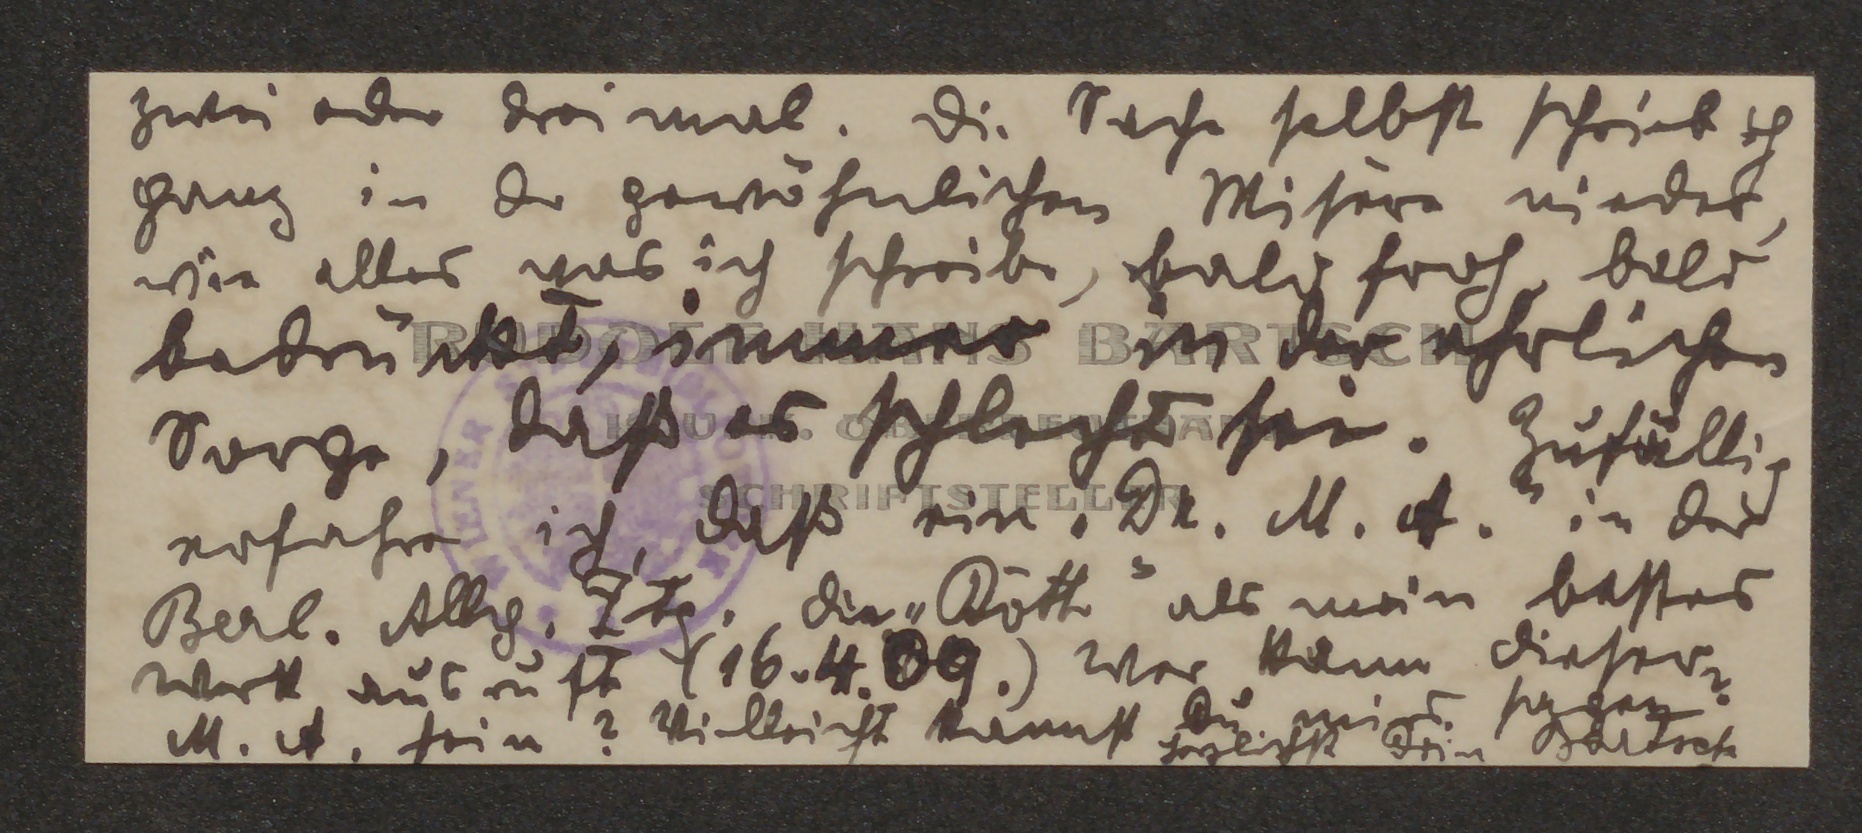 zwei oder drei mal. Die Sache selbst schrieb ich
ganz in der gewöhnlichen Misère nieder,
wie alles was ich schreibe, bald froh, bald
bedrückt, immer in der ehrlichen
Sorge, daß es schlecht sei. Zufällig
erfahre ich, daß ein „Dr. M. A." in der
Berl. Allg. Ztg. die „Kött" als mein bestes
Werk ausruft (16.4.09.) Wer kann dieser
M. A. sein? Vielleicht kannst Du mir's sagen?
herzlichst Dein Bartsch
RUDOLF HANS BARTSCH
K. U. K. OBERLEUTNANT
SCHRIFTSTELLER
WIENER